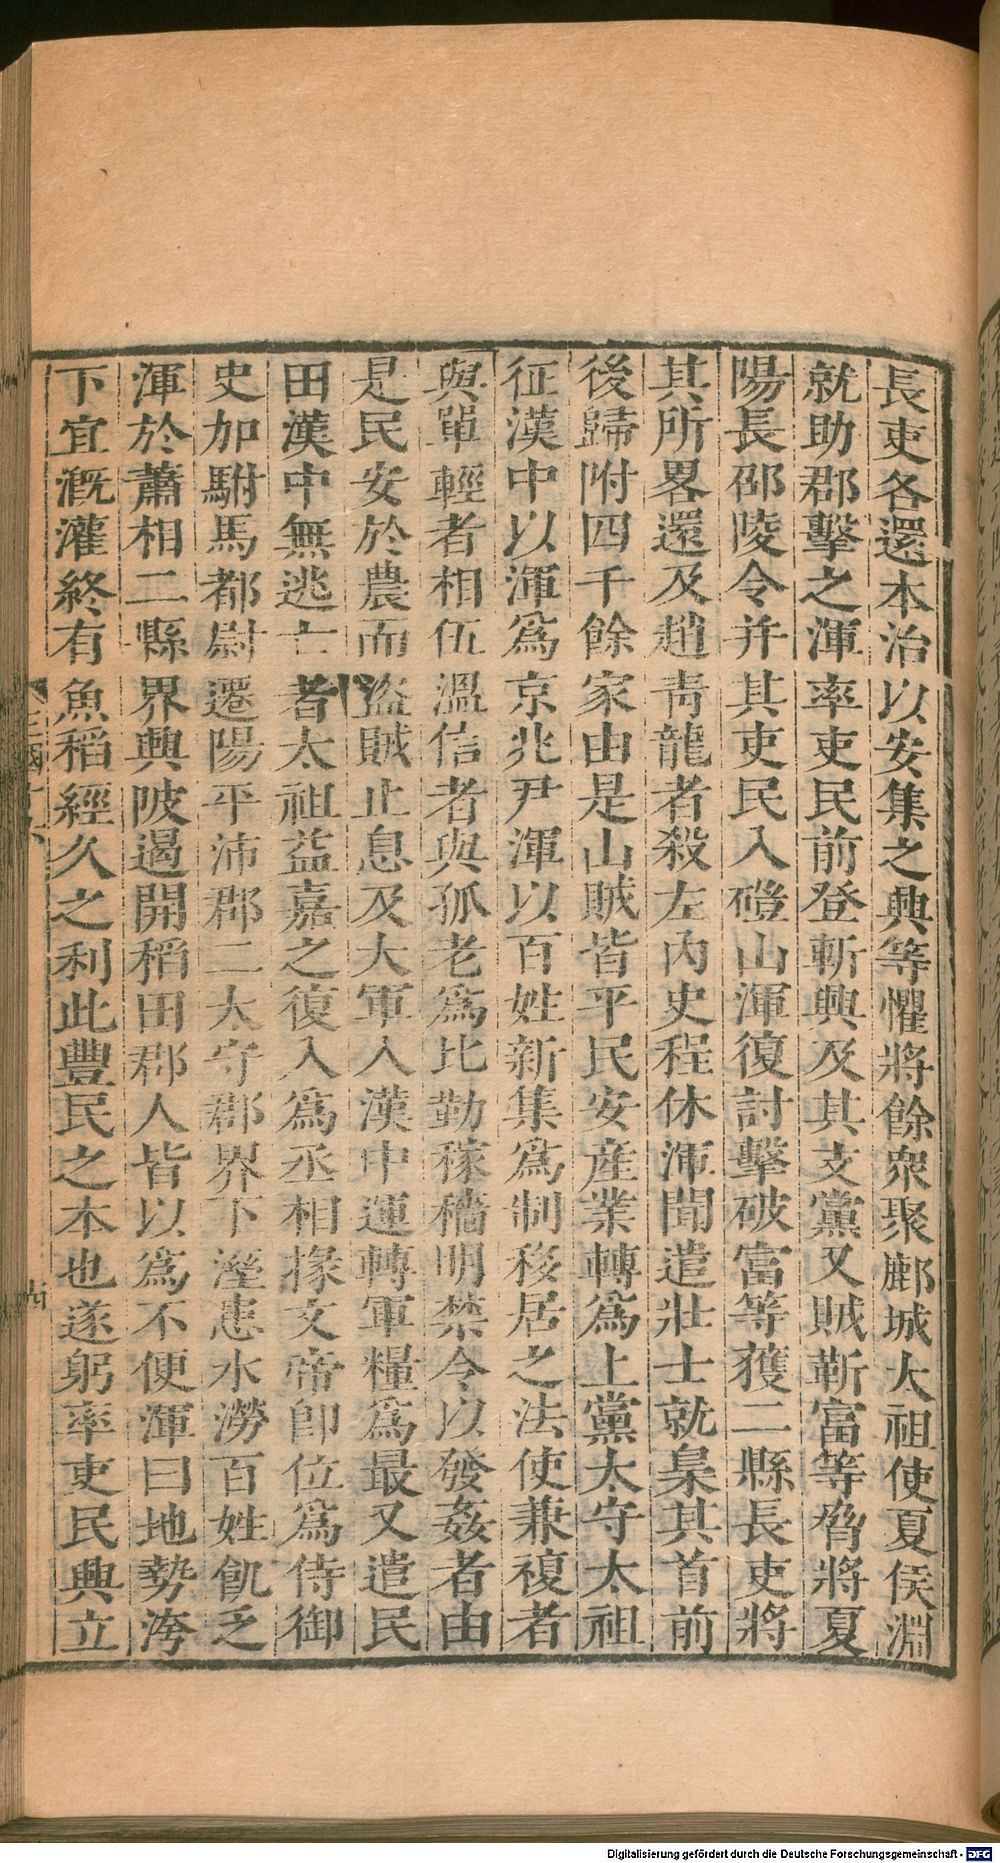 長吏各還本治以安集之興等懼將餘衆聚鄜城太祖使夏侯淵
就助郡擊之渾率吏民前登斬興及其支黨又賊靳富等脅將夏
陽長邵陵令并其吏民入磑山渾復討擊破富等獲二縣長吏將
其所畧還及趙靑龍者殺左內史程休渾聞遣壯士就梟其首前
後歸附四千餘家由是山賊皆平民安産業轉爲上黨太守太祖
征漢中以渾爲京兆尹渾以百姓新集爲制移居之法使兼複者
與單輕者相伍溫信者與孤老爲比勤稼穡明禁令以發姦者由
是民安於農而盜賊止息及大軍入漢中運轉軍糧爲最又遣民
田漢中無逃亡者太祖益嘉之復入爲丞相掾文帝卽位爲侍御
史加駙馬都尉遷陽平沛郡二太守郡界下溼患水澇百姓飢乏
渾於蕭相二縣界興陂遏開稻田郡人皆以爲不便渾曰地勢洿
下宜溉灌終有魚稻經久之利此豐民之本也遂躬率吏民興立
Digitalisierung gefördert durch die Deutsche Forschungsgemeinschaft - DFG